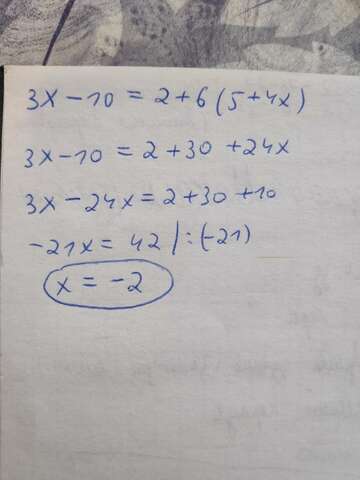 3x - 10 = 2 + 6 (5 + 4x)
3x - 10 = 2 + 30 + 24x
3x - 24x = 2 + 30 + 10
-21x = 42 /: (-21)
x = -2